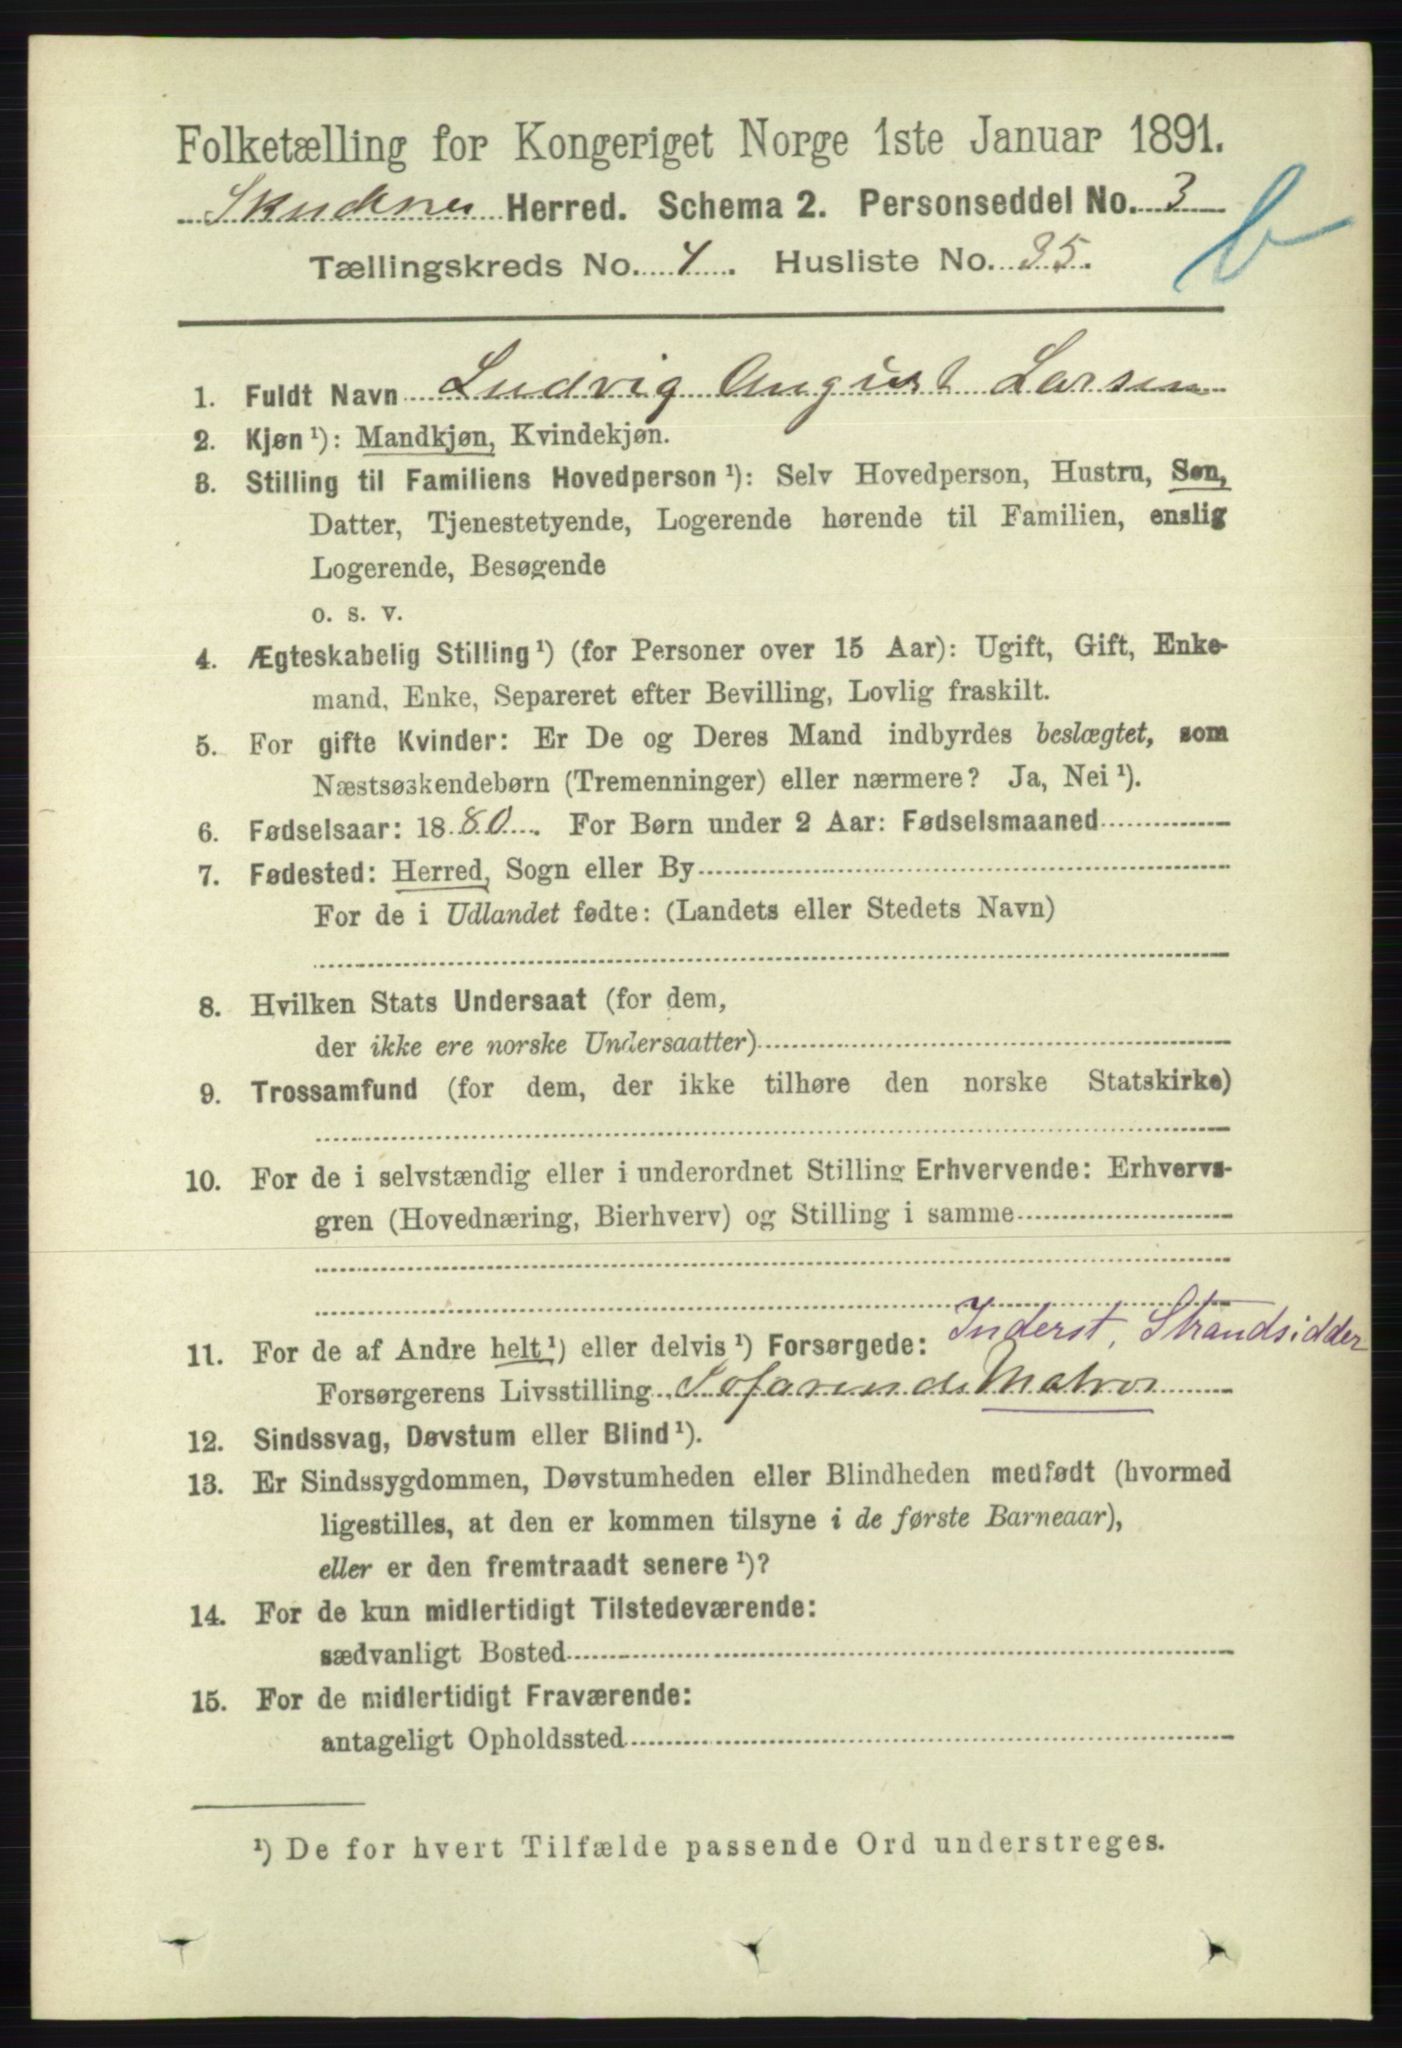 Folketælling for Kongeriget Norge 1ste Januar 1891.
Skudnes Herred. Schema 2. Personseddel No. 3
b
Tællingskreds No. 4. Husliste No. 35.
1. Fuldt Navn Ludvig August Larsen
2. Kjøn ¹): Mandkjøn, Kvindekjøn.
3. Stilling til Familiens Hovedperson ¹): Selv Hovedperson, Hustru, Søn,
Datter, Tjenestetyende, Logerende hørende til Familien, enslig
Logerende, Besøgende
o. s. v.
4. Ægteskabelig Stilling ¹) (for Personer over 15 Aar): Ugift, Gift, Enke-
mand, Enke, Separeret efter Bevilling, Lovlig fraskilt.
5. For gifte Kvinder: Er De og Deres Mand indbyrdes beslægtet, som
Næstsøskendebørn (Tremenninger) eller nærmere? Ja, Nei ¹).
6. Fødselsaar: 1880. For Børn under 2 Aar: Fødselsmaaned
7. Fødested: Herred, Sogn eller By
For de i Udlandet fødte: (Landets eller Stedets Navn)
8. Hvilken Stats Undersaat (for dem,
der ikke ere norske Undersaatter)
9. Trossamfund (for dem, der ikke tilhøre den norske Statskirke)
10. For de i selvstændig eller i underordnet Stilling Erhvervende: Erhvervs-
gren (Hovednæring, Bierhverv) og Stilling i samme
Inderst, Strandsidder
11. For de af Andre helt ¹) eller delvis ¹) Forsørgede:
Forsørgerens Livsstilling Søfarende Matros
12. Sindssvag, Døvstum eller Blind ¹).
13. Er Sindssygdommen, Døvstumheden eller Blindheden medfødt (hvormed
ligestilles, at den er kommen tilsyne i de første Barneaar),
eller er den fremtraadt senere ¹)?
14. For de kun midlertidigt Tilstedeværende:
sædvanligt Bosted
15. For de midlertidigt Fraværende:
antageligt Opholdssted
¹) De for hvert Tilfælde passende Ord understreges.